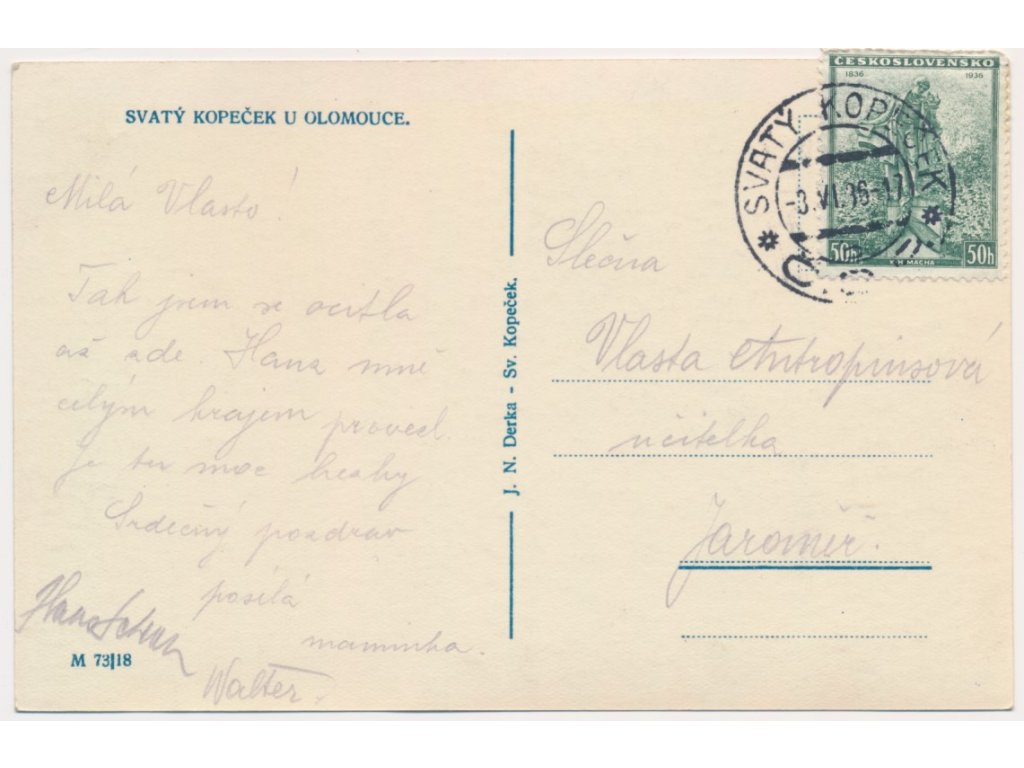 SVATÝ KOPEČEK U OLOMOUCE.
Milá Vlasto!
Tak jsem se ocitla
až zde. Hans mně
celým krajem provedl.
Je tu moc hezky
Srdečný pozdrav
posílá
maminka.
Walter.
M 73|18
J. N. Derka - Sv. Kopeček.
ČESKOSLOVENSKO
1836 1936
50h 50h
K·H MÁCHA
SVATÝ KOPEČEK
-3.VI.36-17
Slečna
Vlasta Antropiusová
učitelka
Jaroměř.